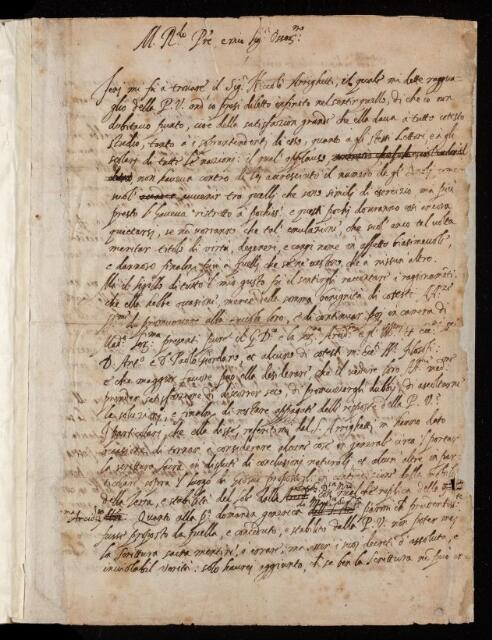 M. R.do P.re e mio Sig.r Oss.mo
Ieri mi fu a trovare il Sig.r Niccolò Arrighetti, il quale mi dette raggua
glio della P. V. ond'io presi diletto infinito nel sentir quello, di che io non
dubitavo punto, cioè della satisfazion grande che ella dava a tutto cotesto
studio, tanto a i sopraintendenti di esso, quanto a gli stessi lettori, e a gli
scolari di tutte le nazioni: il qual applauso
non haveva contro di lei accresciuto il numero de gl'
suol avvenir tra quelli che sono simili di esercizio ma più
presto l'haveva ristretto a pochiss.i e questi pochi dovranno essi ancora
quietarsi, se nō vorranno che tal emulazione, che suol anco tal volta
meritar titolo di virtù, degeneri, e cangi nome in affetto biasimevole,
e dannoso finalm.te più a quelli, che se ne vestono, che a nissun altro.
Ma il sigillo di tutto il mio gusto fu il sentirgli raccontar i ragionam.ti
che ella hebbe occasione, mercè della somma benignità di coteste Al.ze
Ser.me di promuovere alla tavola loro, e di continuar poi in camera di
Mad.a Ser.ma presenti pure il G. D. e la Ser.ma Arcid.
D. Ant.o e D. Paolo Giordano, et alcuni di cotesti
e che maggior favore può ella desiderare che il vedere loro Al. med.e
prender satisfazione di discorrer seco, di promuovergli dubbii, di ascoltarne
le soluzioni, e finalm.te di restare appagate delle risposte della P. V.
I particolari, che ella disse, referitimi dal S. Arrighetti, m' hanno dato
occasione di tornar a considerare alcune cose in generale circa 'l portar
la scrittura sacra in dispute di conclusioni naturali, et alcun'altre in par
ticolare sopra 'l luogo di Giosuè propostogli in contradizione della mobilità
della Terra, e stabilità del sole dalla con qualche replica della
Quanto alla p.a domanda generica parmi che prudentiss.
fusse proposto da quella, e conceduto, e stabilito dalla P. V. non poter mai
la scrittura sacra mentire, o errare, ma esser i suoi decreti d'assoluta, et
inviolabil verità: solo haurei aggiunto, che se ben la Scrittura nō può er